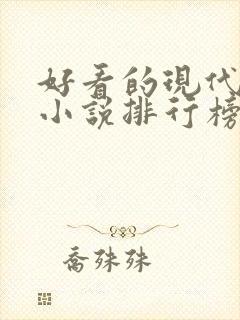 好看的現代
小說排行榜
喬殊殊